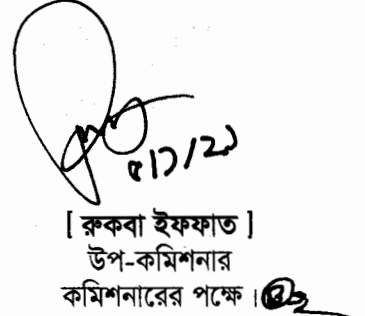 [ রুকবা ইফফাত ]
উপ-কমিশনার
কমিশনারের পক্ষে ।